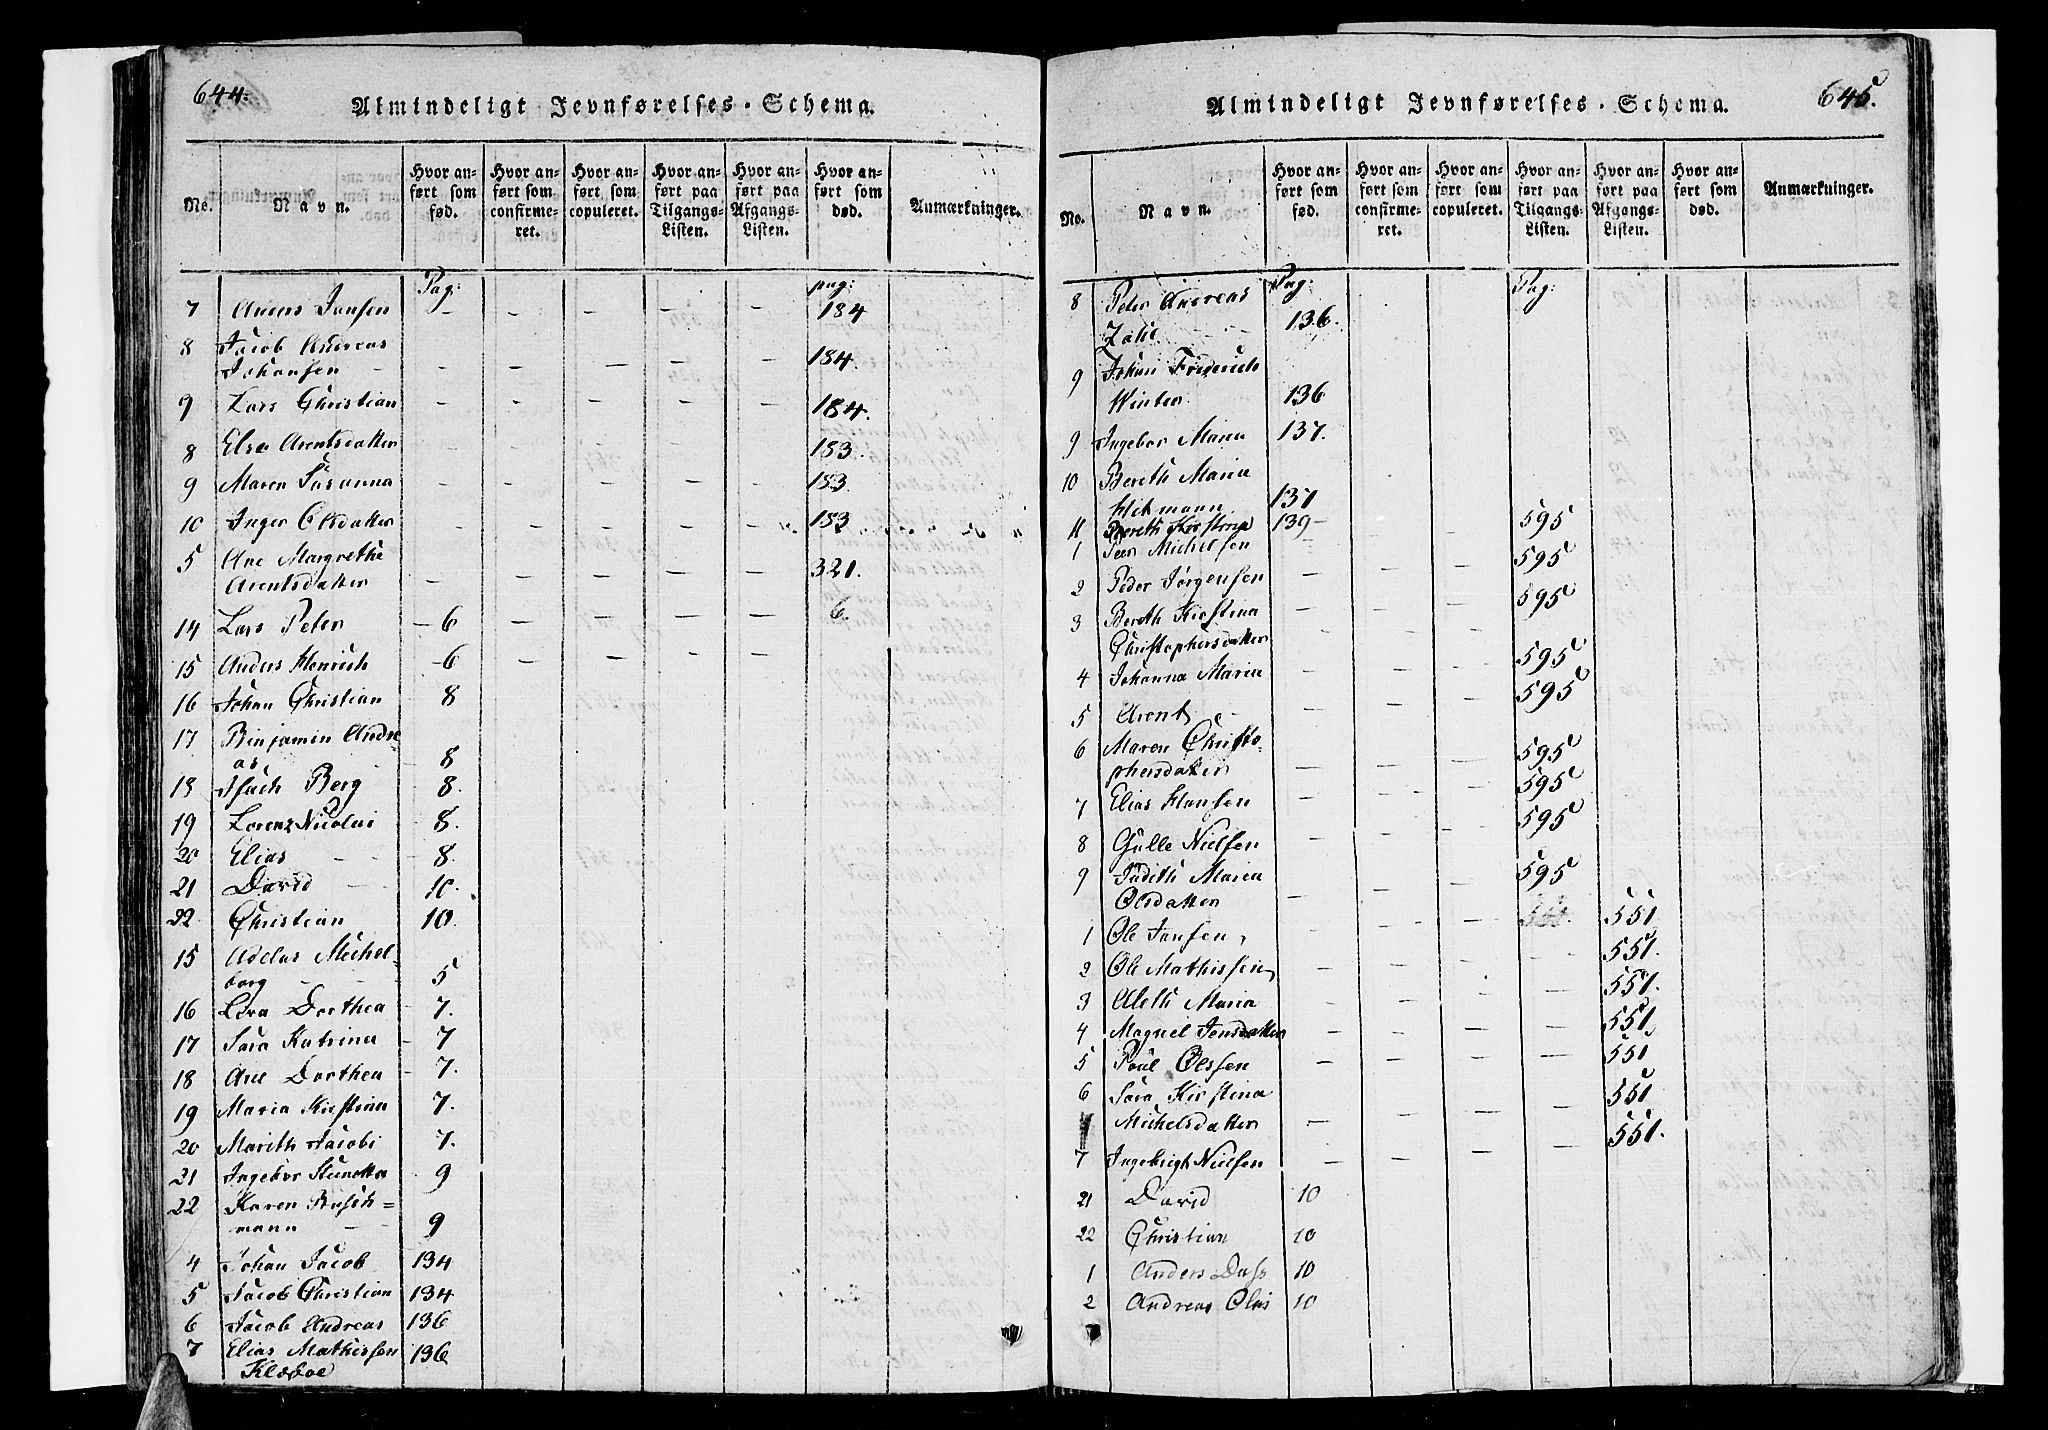 644.
Almindeligt Jevnførelses-Schema.
No. Navn. Hvor anført som fød. Hvor anført som confirmeret. Hvor anført som copuleret. Hvor anført paa Tilgangs-Listen. Hvor anført paa Afgangs-Listen. Hvor anført som død. Anmærkninger.
Pag: pag:
7 Anders Jansen - - - - - 184
8 Jacob Andreas
Johansen - - - - - - 184.
9 Lars Christian - - - - - 184.
8 Else Arentsdatter - - - - - 183
9 Maren Susanna - - - - - 183
10 Inger Olsdatter - - - - - 183
5 Ane Margrethe
Arentsdatter - - - - - 321.
14 Lars Peter - 6 - - - - 6.
15 Anders Henrich - 6 - - - -
16 Johan Christian 8
17 Binjamin Andre-
as 8
18 Isach Berg 8.
19 Lorenz Nicolai 8.
20 Elias - - 8.
21 David - - 10.
22 Christian 10.
15 Adelus Michel-
borg - - 5
16 Lera Dorthea - 7.
17 Sara Katrina - 7
18 Ane Dorthea - 7.
19 Maria Kirstina 7.
20 Marith Jacobi 7.
21 Ingebor 9
22 Karen Busch=
mann - - 9
4 Johan Jacob 134
5 Jacob Christian 134
6 Jacob Andreas 136
7 Elias Mathissen 136
Klæboe
645.
Almindeligt Jevnførelses-Schema.
No. Navn. Hvor anført som fød. Hvor anført som confirmeret. Hvor anført som copuleret. Hvor anført paa Tilgangs-Listen. Hvor anført paa Afgangs-Listen. Hvor anført som død. Anmærkninger.
Pag: Pag:
8 Peter Andreas
136.
9 Johan Friderich
Winter 136
9 Ingebor Maria 137.
10 Bereth Maria
Hekmann 137
11 Bereth Kirstina 139-
1 Peer Michelsen - - - 595
2 Peder Jørgensen - - - 595
3 Bereth Kirstina - - - 595
Christophersdatter
4 Johanna Maria - - - 595
5 Arent - - - 595
6 Maren Christo-
phersdatter - - - 595
7 Elias Hansen - - - 595
8 Gulle Nielsen - - - 595
9 Judith Maria
Olsdatter - - - 595
1 Ole Jansen - - - - 551
2 Ole Mathissen - - - - 551.
3 Aleth Maria - - - - 551.
4 Magnel Jensdatter - - - - 551
5 Poul Olssen - - - - 551
6 Sara Kirstina
Michelsdatter - - - - 551
7 Ingebrigt Nielsen - - - - 551.
21 David 10
22 Christian 10
1 Anders Dass 10
2 Andreas Olai 10